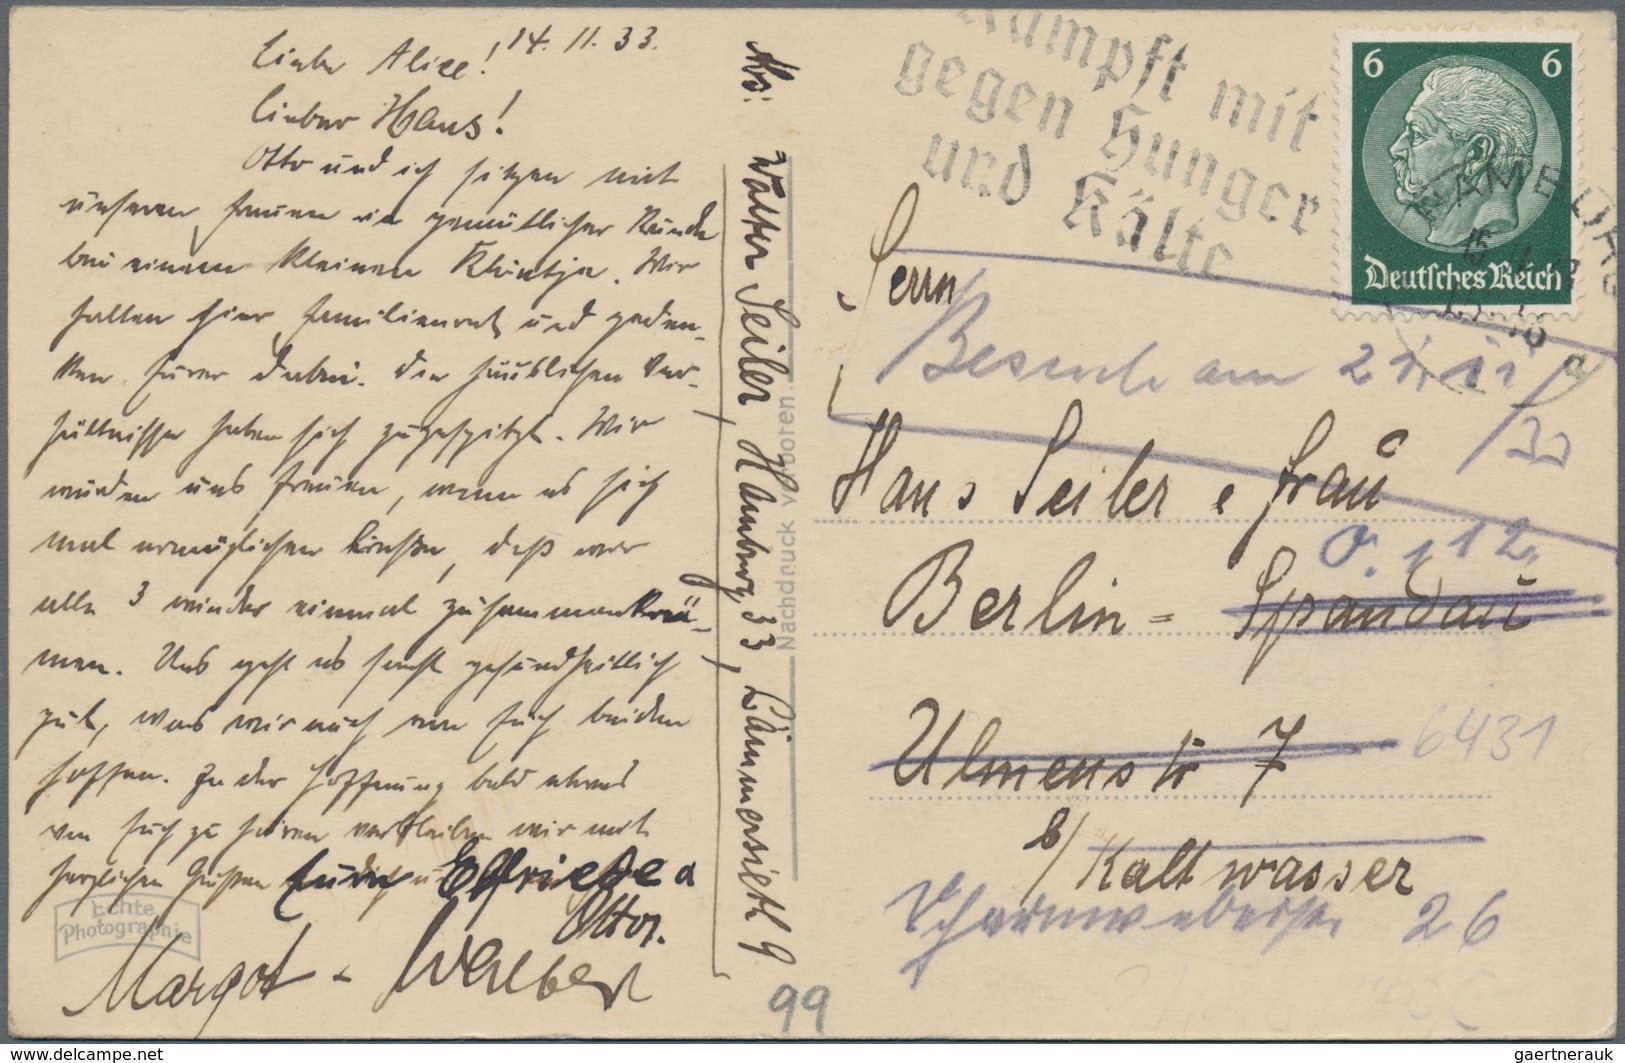 14. 11. 33.
Liebe Alice!
Lieber Hans!
Otto und ich sitzen mit
unseren Frauen in gemütlicher Runde
bei einem kleinen Klöntje. Wir
halten hier Familienrat und geden-
ken Eurer dabei. Die häuslichen Ver-
hältnisse haben sich zugespitzt. Wir
würden uns freuen, wenn es sich
mal ermöglichen ließe, daß wir
alle 3 wieder einmal zusammenkä-
men. Uns geht es sonst gesundheitlich
gut, was wir auch von Euch beiden
hoffen. In der Hoffnung bald etwas
von Euch zu hören verbleiben wir mit
herzlichen Grüßen Elfriede u
Otto.
Margot - 
Echte
Photographie
Abs: Walter Seiler, Hamburg 33, Lämmersieth 9
Nachdruck verboten
Kämpft mit
gegen Hunger
und Kälte
6 6
Deutsches Reich
HAMBURG
Herrn
Besuch am 21. 11
/33
Hans Seiler u Frau
O. 112.
Berlin = Spandau
Ulmenstr 7
6431
b/ Kaltwasser
Scharnweberstr 26
99
delcampe.net
gaertnerauk